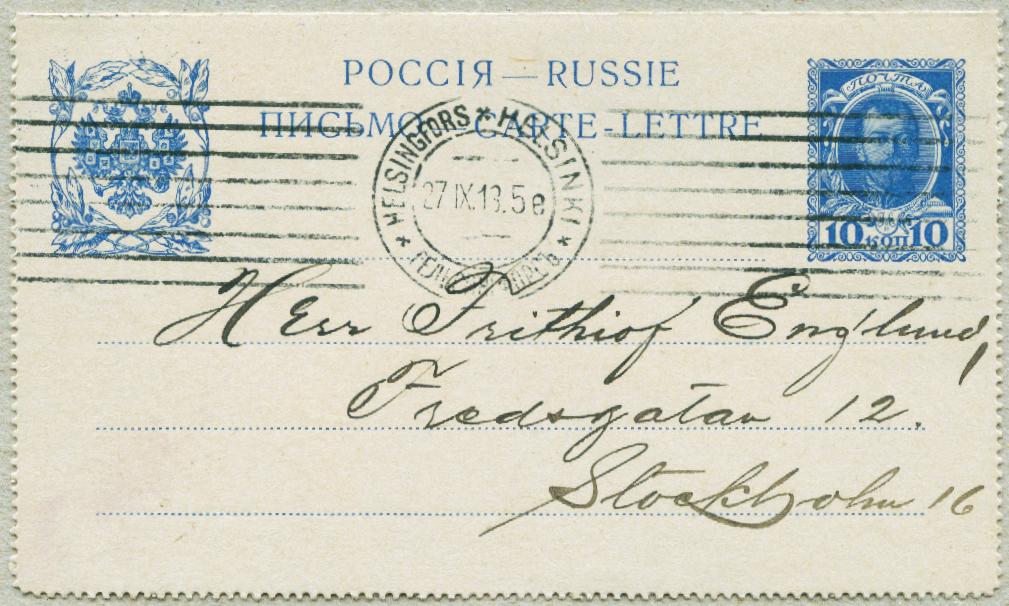 РОССІЯ — RUSSIE
ПИСЬМО CARTE-LETTRE
ПОЧТА
10 КОП 10
HELSINGFORS * HELSINKI *
27 IX.13. 5 e
Herr Frithiof Englund,
Fredsgatan 12.
Stockholm 16